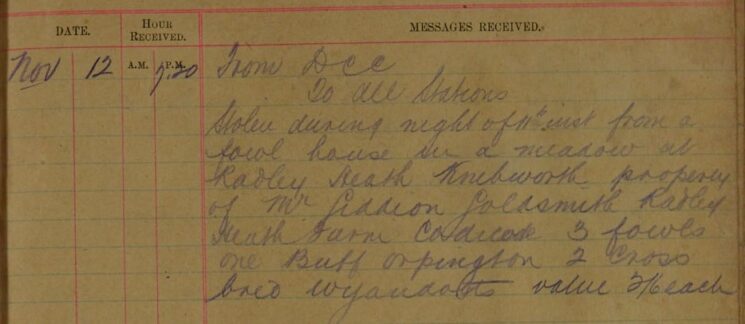 DATE. HOUR RECEIVED. MESSAGES RECEIVED.
Nov 12 A.M. P.M. 7.20 From DCC
To all Stations
Stolen during night of 11th inst from a
fowl house in a meadow at
Radley Heath Knebworth property
of Mr Giddion Goldsmith Radley
Heath Farm Codicote 3 fowls
one Buff orpington 2 Cross
bred Wyandotts value 3/6 each